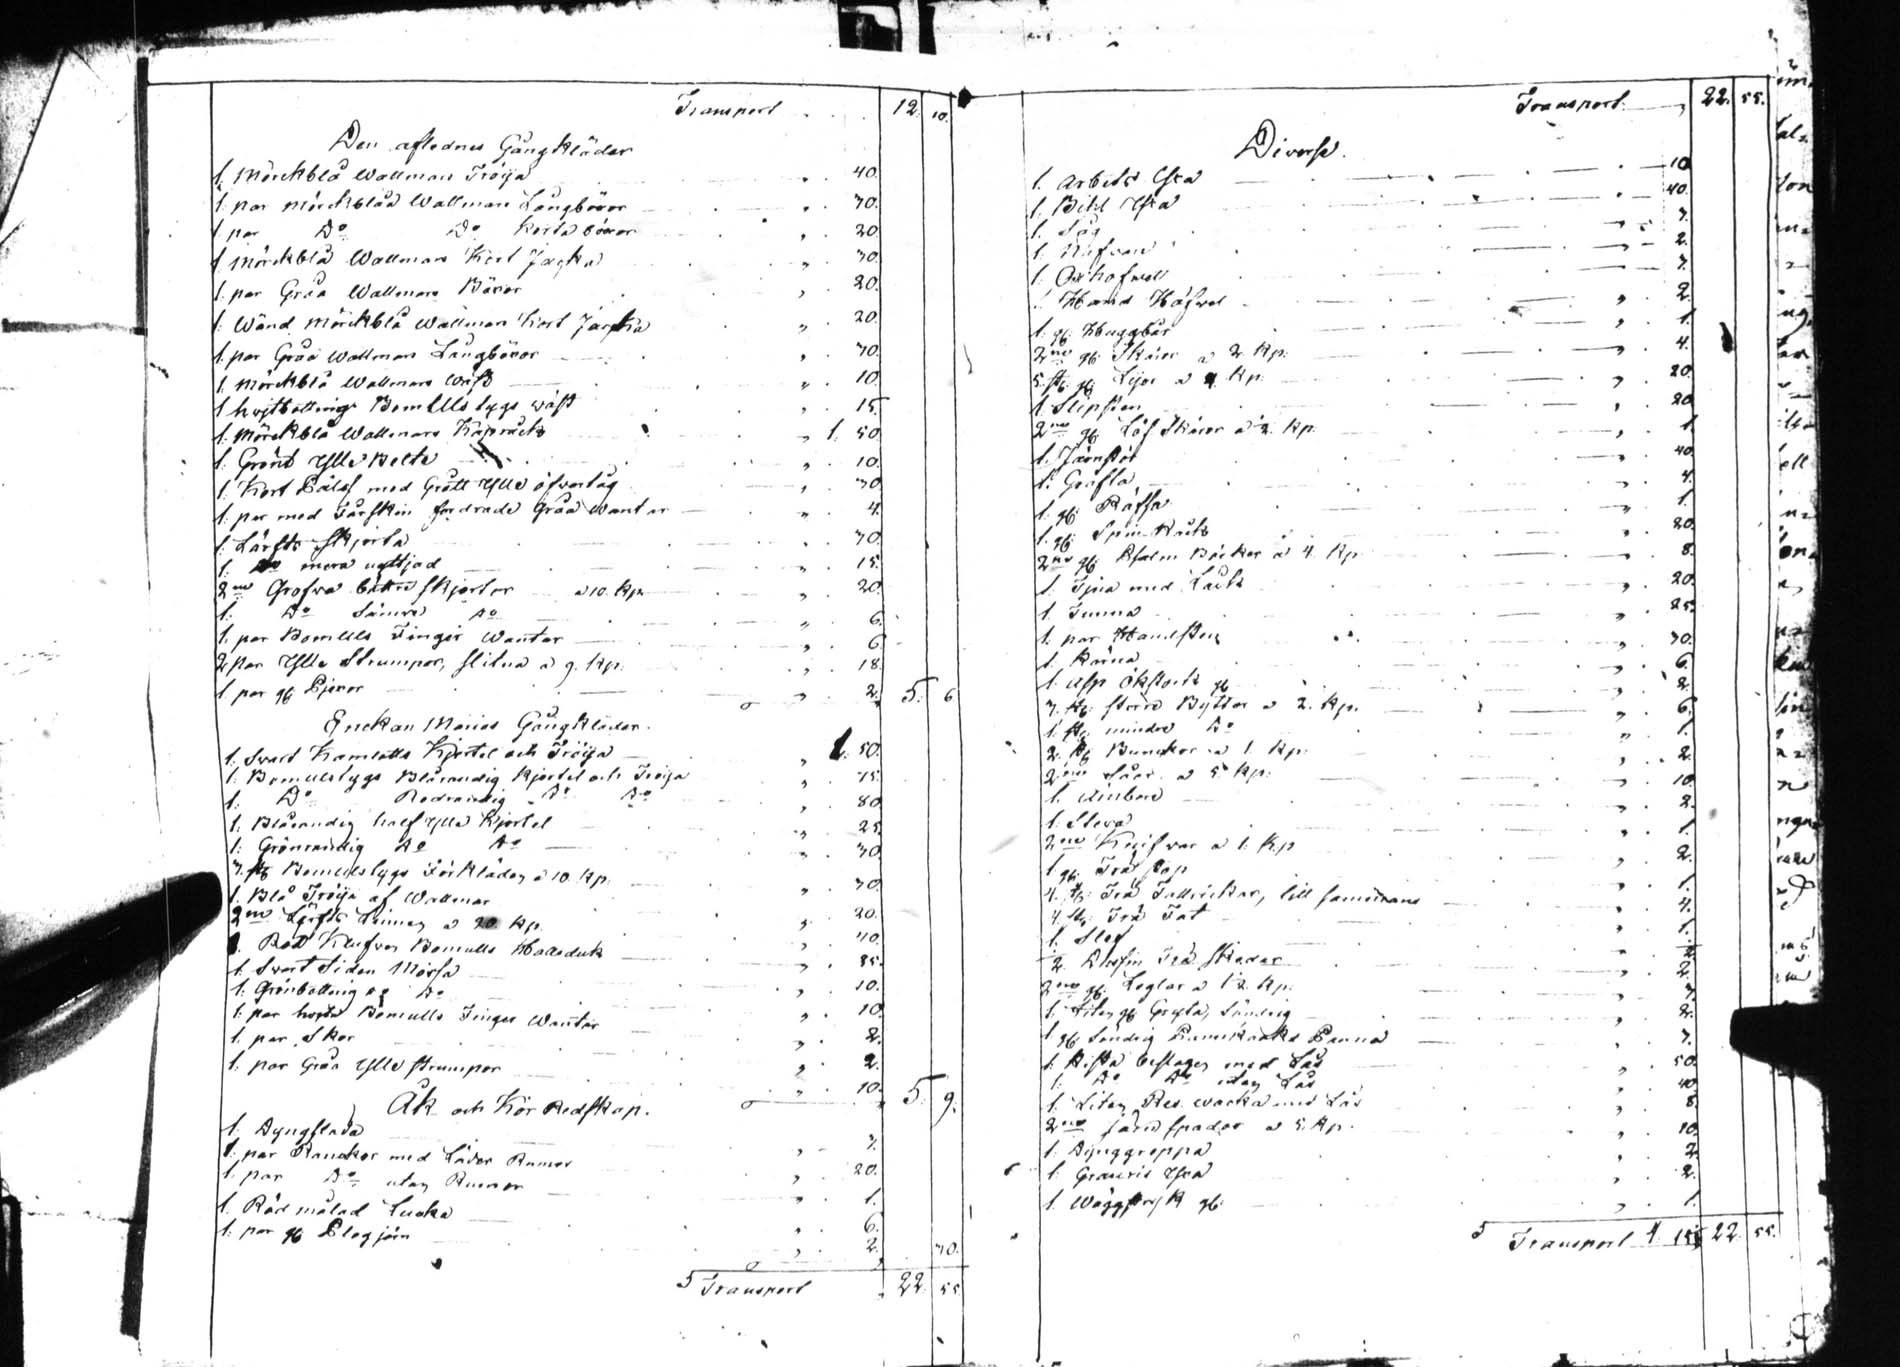 Transport 12. 10.
Den aflednes Gångkläder
1. Mörckblå Wallmans Tröija 40.
1. par mörckblåa Wallmans Långböxor 70.
1 par Do Do Korta böxor 20
1 Mörckblå Wallmans Kort Jacka 30.
1. par Gråa Wallmans Böxor 20.
1. Wänd Mörckblå Wallmans Kort Jacka 20.
1. par Gråa Wallmans Långböxor 30.
1. Mörckblå Wallmans Wäst 10.
1 hvitbottnig Bomulls tygs wäst 15.
1. Mörckblå Wallmans Kaprock 1. 50.
1. Grönt Ylle Belte 10.
1. Kort Päls med Grått Ylle öfvertåg 30
1. par med Fårskin fordrade Gråa Wantar 4.
1. Lärfts Skjorta 30.
1. Do mera nöttjad 15.
2ne Grofva bättre skjortor a 10. Kp 20.
1. Do Sämre Do 6.
1. par Bomulls Finger Wantar 6.
2 par Ylle Strumpor, slitna a 9. Kp. 18.
1 par gl 2. 5. 6
Enckan Marias Gångkläder.
1. Svart Kamlotts Kjortel och Tröija 1. 50.
1. Bomulstygs Blårandig Kjortel och Tröija 75.
1. Do Rödrandig Do Do 80.
1. Blårandig half Ylle Kjortel 25.
1. Grönrandig Do Do 30.
3. st Bomulstygs Förkläden a 10. Kp. 30.
1. Blå Tröija af Wallmar 20.
2ne Lärfts Linnen a 20 Kp. 40.
1. Röd Klufven Bomulls Halsduk 35.
1. Svart Siden Mössa 10.
1. Grönbottnig Do Do 10.
1. par hvita Bomulls Finger Wantar 2.
1. par Skor 2.
1. par Gråa Ylle strumpor 10. 5. 9.
Åk och Kör Redskap.
1. Dyngslada 3.
1. par med Läder 20.
1. par Do utan 1.
1. Röd målad Lucka 6.
1. par gl Plogjärn 2. 30.
Transport 22. 55
Transport 22. 55.
Diverse.
1. Arbets Yxa 10
1. Bihl Yxa 40.
1. Såg 3.
1. 2.
1. 3.
1. Hand 2.
1. gl 1.
2ne gl Skäror a 2 Kp. 4.
5. st gl Lijor a 4 Kp. 20.
1. Slipsten 20
2ne gl Löf Skäror a ½ Kp. 1.
1. Järnstör 40.
1. Grafta 4.
1. gl Räfsa 1.
1. gl Spin Råck 20.
2ne gl Psalm Böcker a 4. Kp 8.
1. Tjna med Låck 20.
1 Tunna 25.
1. par Handsten 30.
1. Kärna 6.
1. Asp gl 2.
3. st större Byttor a 2. Kp. 6.
1. st mindre Do 1.
2. st Bunckor a 1 Kp. 2.
2ne Såar a 5. Kp. 10.
1. Ämbare 2.
1. Sleva 1.
2ne Knifvar a 1. Kp 2.
1. gl Trä 1.
4. st Trä Tallrickar, till sammans 4.
4. st Trä Fat 1.
1. Slef
2. Trä skedar 2.
2ne gl Leglar a 1½ Kp. 3.
1. Liten gl Gryta, Söndrig 2.
1 gl Söndrig Panna 3.
1. Kista beslagen med Lås 50.
1. Do Do utan Lås 40
1. Liten Res. wacka med Lås 8.
2ne spador a 5. Kp. 10.
1. Dynggreppa 2.
1. Yxa 2.
1 gl. 1.
Transport 4 15 22 55.